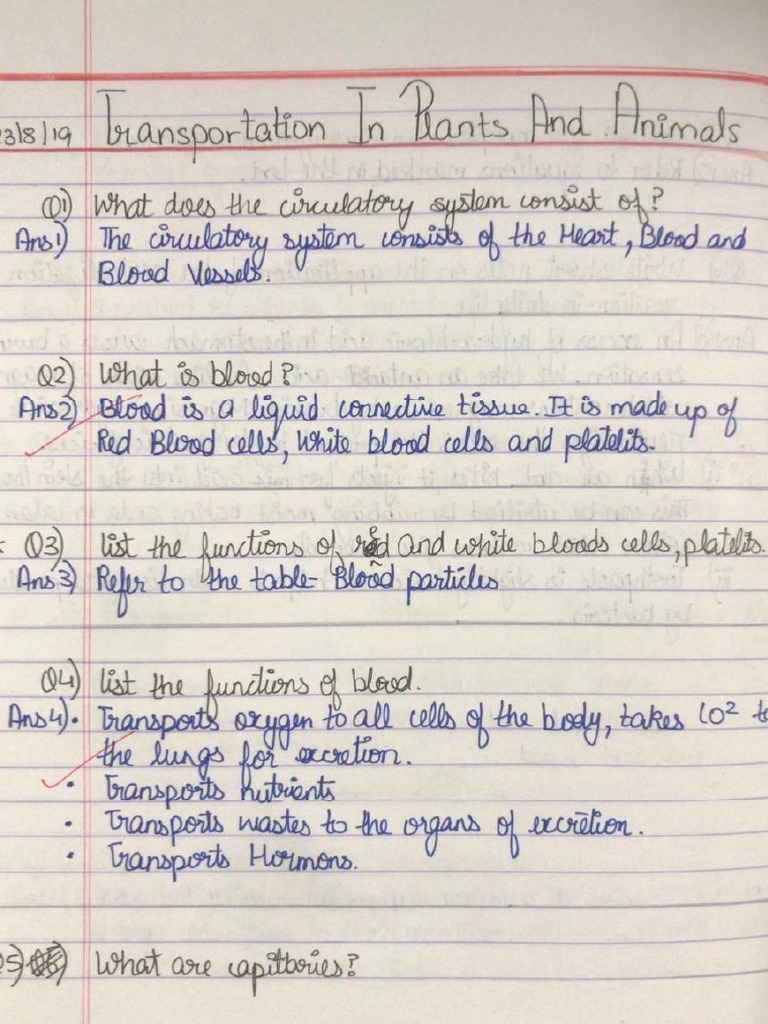 23/8/19 Transportation In Plants And Animals
Q1) What does the circulatory system consist of?
Ans1) The circulatory system consists of the Heart, Blood and
Blood Vessels.
Q2) What is blood?
Ans2) Blood is a liquid connective tissue. It is made up of
Red Blood cells, white blood cells and platelits.
Q3) list the functions of red and white bloods cells, platelits.
Ans3) Refer to the table- Blood particles
Q4) list the functions of blood.
Ans4) • Transports oxygen to all cells of the body, takes CO² to
the lungs for excretion.
• Transports nutrients
• Transports wastes to the organs of excretion.
• Transports Hormons.
Q5) What are capillaries?